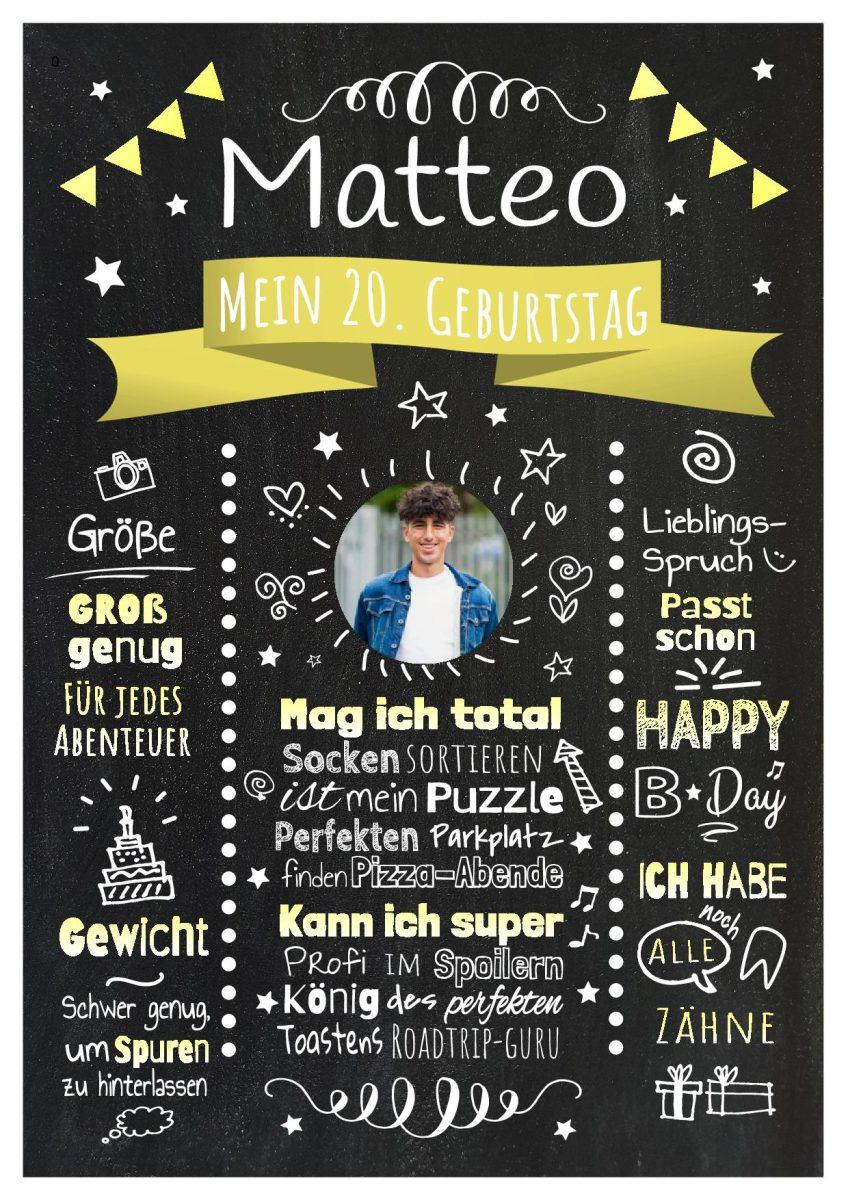 0
Matteo
Mein 20. Geburtstag
Größe
GROß
genug
Für jedes
Abenteuer
Gewicht
Schwer genug,
um Spuren
zu hinterlassen
Mag ich total
Socken SORTIEREN
ist mein Puzzle
Perfekten Parkplatz
finden Pizza-Abende
Kann ich super
Profi im Spoilern
König des perfekten
Toastens Roadtrip-Guru
Lieblings-
Spruch
Passt
schon
HAPPY
B Day
ICH HABE
noch
ALLE
ZÄHNE